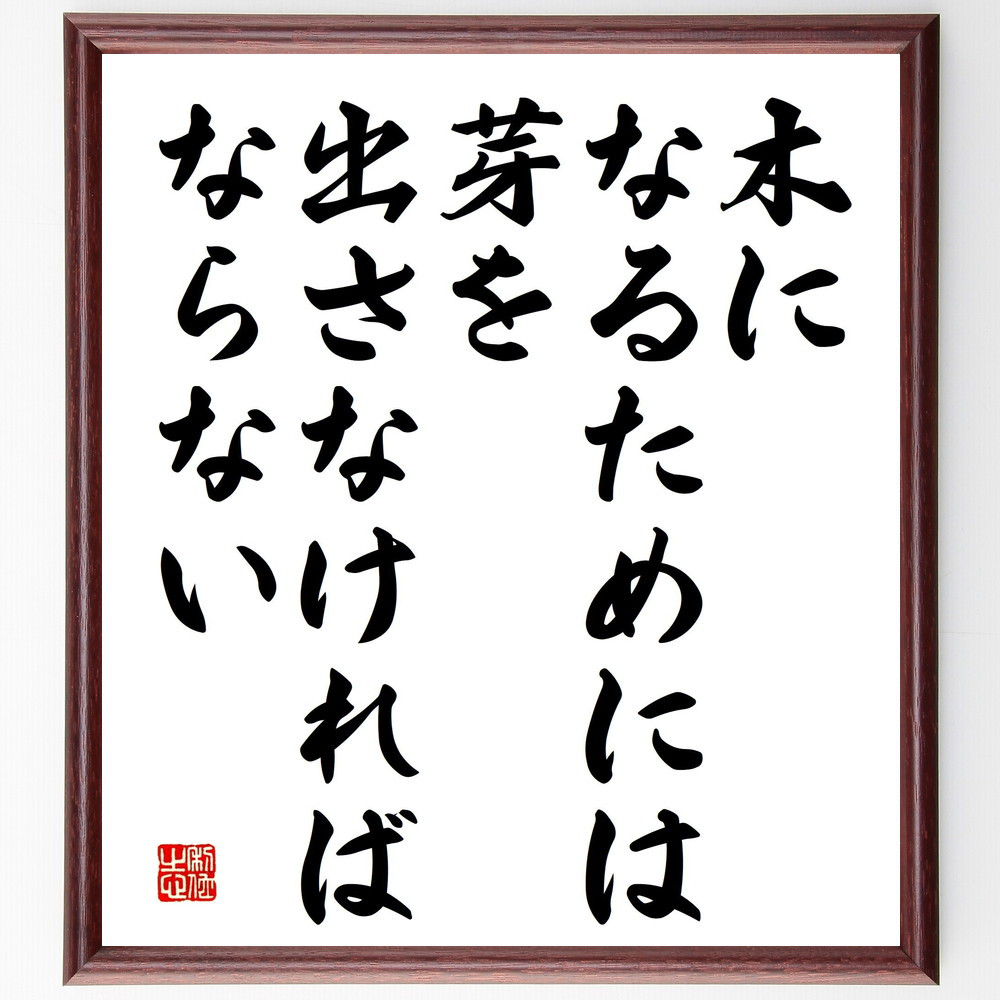 木に
なるためには
芽を
出さなければ
ならない